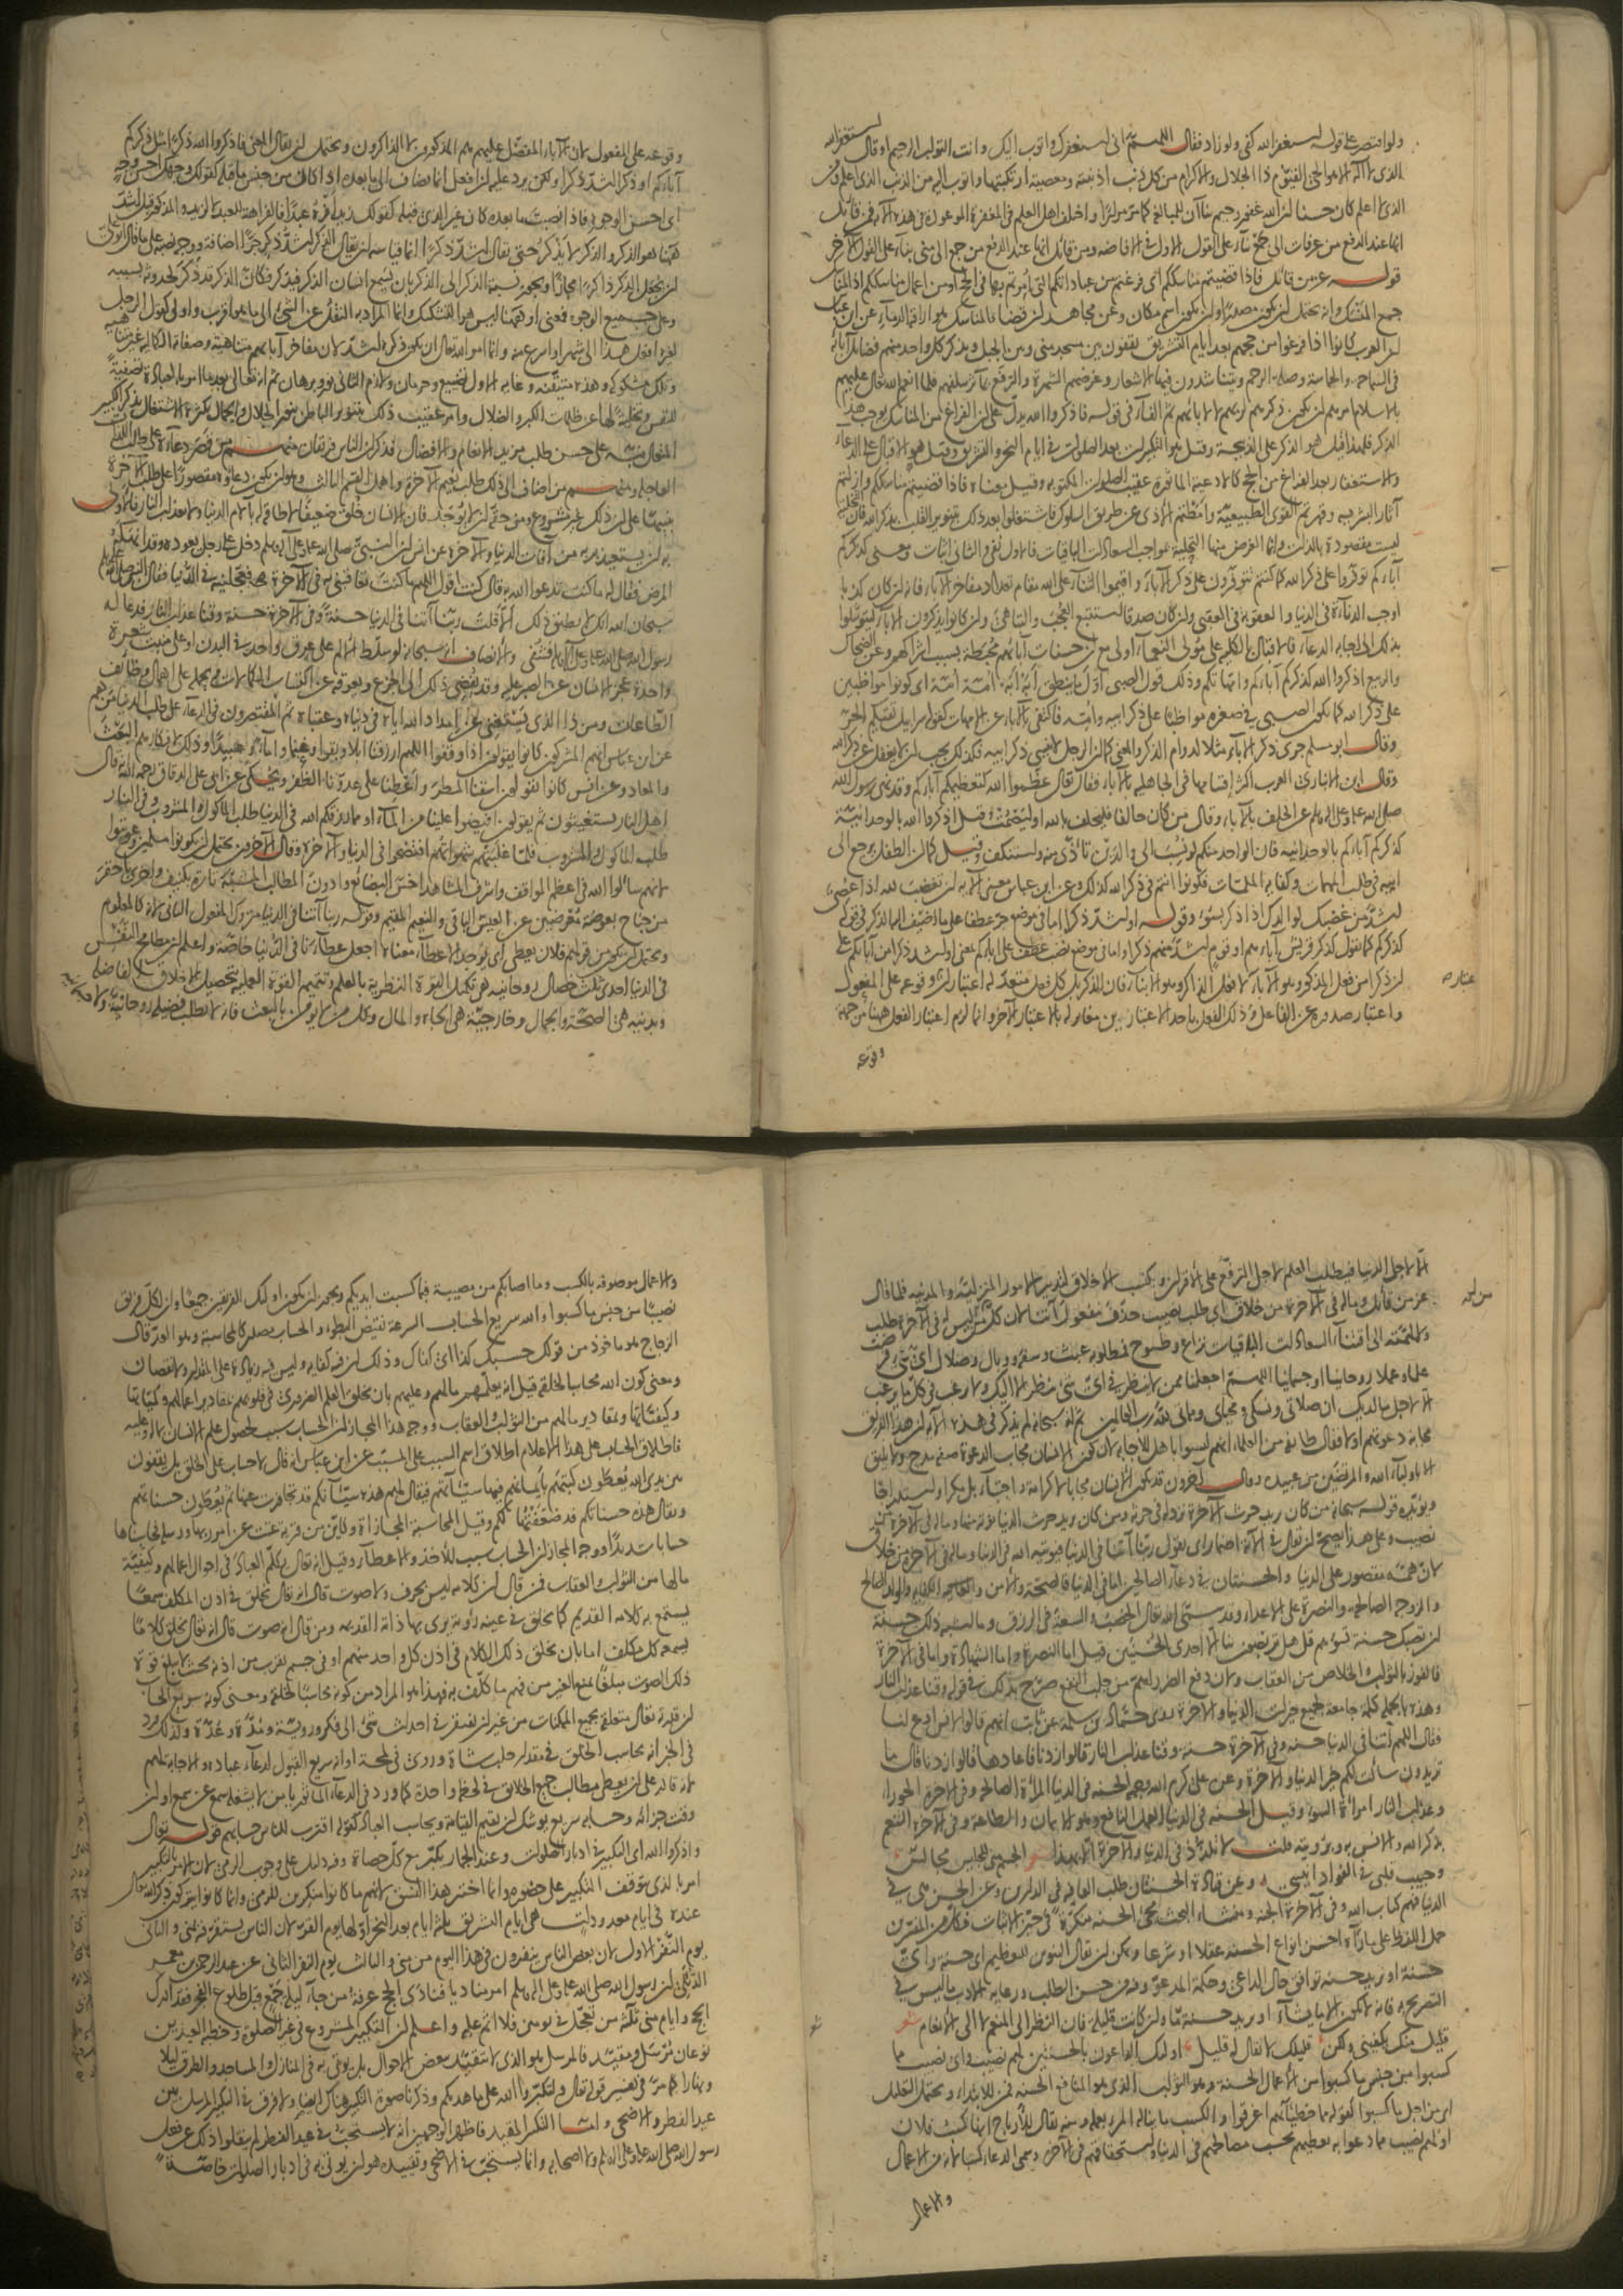 ولو اقتصر على قوله استغفر الله كفى ولو زاد فقال اللهم انى استغفرك واتوب اليك وانت التواب الرحيم او قال استغفر الله
الذى لا اله الا هو الحى القيوم ذا الجلال والاكرام من كل ذنب اذنبته ومعصية ارتكبتها واتوب اليه من الذنب الذى اعلم ومن
الذى لا اعلم كان حسنا ان الله غفور رحيم بناآن للمبالغة كما مر مرارا واختلف اهل العلم فى المغفرة الموعودة فى هذه الآية فمن قائل
انها عند الدفع من عرفات الى جمع بناء على القول الاول فى الافاضة ومن قائل انها عند الدفع من جمع الى منى بناء على القول الآخر
قوله عز من قائل فاذا قضيتم مناسككم اى فرغتم من عباداتكم التى امرتم بها فى الحج او من اعمال مناسككم اذ المناسك
جمع المنسك وانه يحتمل ان يكون مصدرا وان يكون اسم مكان وعن مجاهد ان قضاء المناسك هو اراقة الدماء عن ابن عباس
ان العرب كانوا اذا فرغوا من حجهم بعد ايام التشريق يقفون بين مسجد منى وبين الجبل ويذكر كل واحد منهم فضائل آبائه
فى السماحة والحماسة وصلة الرحم ويتناشدون فيها الاشعار وغرضهم الشهرة والترفع بمآثر سلفهم فلما انعم الله تعالى عليهم
بالاسلام امرهم ان يكون ذكرهم لربهم لا لآبائهم ثم الفاء فى قوله فاذكروا الله يدل على ان الفراغ من المناسك يوجب هذا
الذكر فلهذا قيل هو الذكر على الذبيحة وقيل هو التكبيرات بعد الصلوات فى ايام النحر والتشريق وقيل هو الاقبال على الدعاء
والاستغفار بعد الفراغ من الحج كالادعية المأثورة عقيب الصلوات المكتوبة وقيل معناه فاذا قضيتم مناسككم وازلتم
آثار البشرية وقهرتم القوى الطبيعية وامطتم الاذى عن طريق السلوك فاشتغلوا بعد ذلك بتنوير القلب بذكر الله فان التخلية
ليست مقصودة بالذات وانما الغرض منها التحلية بمواجب السعادات الباقيات فالاول نفى والثانى اثبات ومعنى كذكركم
آباءكم توفروا على ذكر الله كما كنتم تتوفرون على ذكر الآباء واقيموا الثناء على الله مقام تعداد مفاخر الآباء فانه ان كان كذبا
اوجب الدناءة فى الدنيا والعقوبة فى العقبى وان كان صدقا استتبع العجب والتباهى وان كانوا يذكرون الآباء ليتوسلوا
بذلك الى اجابة الدعاء فالاقبال بالكلية على مولى النعماء اولى مع ان حسنات آبائهم محبطة بسبب اشراكهم وعن الضحاك
والربيع اذكروا الله كذكركم آباءكم وامهاتكم وذلك قول الصبى اول ما ينطق ابه ابه امه امه اى كونوا مواظبين
على ذكر الله كما يكون الصبى فى صغره مواظبا على ذكر ابيه وامه فاكتفى بالآباء عن الامهات كقوله سرابيل تقيكم الحر
وقال ابو مسلم جرى ذكر الآباء مثلا لدوام الذكر والمعنى كما ان الرجل لا ينسى ذكر ابيه فكذلك يجب ان لا يغفل عن ذكر الله
وقال ابن الانبارى العرب اكثر اقسامها فى الجاهلية بالآباء فقال تعالى عظموا الله كتعظيمكم آباءكم وقد نهى رسول الله
صلى الله عليه وعلى آله وسلم عن الحلف بالآباء وقال من كان حالفا فليحلف بالله او ليصمت وقيل اذكروا الله بالوحدانية
كذكركم آباءكم بالوحدانية فان الواحد منكم لو نسب الى والدين تأذى منه واستنكف وقيل كما ان الطفل يرجع الى
ابيه فى طلب المهمات وكفاية الملمات فكونوا انتم فى ذكر الله كذلك وعن ابن عباس معنى الآية ان تغضب لله اذا عصى
اشد من غضبك لوالدك اذا ذكر بسوء وقوله او اشد ذكرا اما فى موضع جر عطفا على ما اضيف اليه الذكر فى قوله
كذكركم كما تقول كذكر قريش آباءهم او قوم اشد منهم ذكرا واما فى موضع نصب عطف على آباءكم بمعنى او اشد ذكرا من آبائكم على
ان ذكرا من فعل المذكور وهو الآباء لا فعل الذاكر وهو الابناء فان الذكر بل كل فعل متعد له اعتباران وقوعه على المفعول
واعتبار صدوره عن الفاعل وذلك الفعل باحد الاعتبارين مغاير له بالاعتبار الآخر وانما لزم اعتبار الفعل ههنا من جهة
وقوعه
وقوعه على المفعول لان الآباء المفضل عليهم هم المذكورون لا الذاكرون ويحتمل ان يقال المعنى فاذكروا الله ذكرا مثل ذكركم
آباءكم او ذكرا اشد ذكرا ولكن يرد عليه ان افعل انما يضاف الى ما بعده اذا كان من جنس ما قبله كقولك وجهك احسن وجه
اى احسن الوجوه فاذا نصبت ما بعده كان غير الذى قبله كقولك زيد افره عبدا فالفراهة للعبد لا لزيد والمذكور قبل اشد
ههنا هو الذكر والذكر لا يذكر حتى يقال اشد ذكرا انما قياسه ان يقال الذكر اشد ذكر جرا اضافة ووجه نصبه على ما قال ابو على
ان يجعل الذكر ذاكرا مجازا ويجوز نسبة الذكر الى الذكر بان يسمع انسان الذكر فيذكر فكأن الذكر قد ذكر لحدوثه بسببه
وعلى جميع الوجوه فمعنى او ههنا ليس هو التشكيك وانما المراد به النقل عن الشئ الى ما هو اقرب واولى كقول الرجل
لغيره افعل هذا الى شهر او اسرع منه وانما امر الله تعالى ان يكون ذكره اشد لان مفاخر آبائهم متناهية وصفاته الكمالية غير متناهية
وتلك مشكوكة وهذه متيقنة وغاية الاول تضييع وحرمان ولازم الثانى نور وبرهان ثم انه تعالى بعد ما امر بالعبادة تصفية
للنفس وتخلية لها عن ظلمات الكبر والضلال وامر عقيب ذلك بتنوير الباطن بنور الجلال والجمال بكثرة الاشتغال بذكر الكبير
المتعال نبه على حسن طلب مزيد الانعام والافضال فذكر ان الناس فريقان منهم من قصر دعاءه على طلب اللذات
العاجلة ومنهم من اضاف الى ذلك طلب نعيم الآخرة واهمل القسم الثالث وهو ان يكون دعاؤه مقصورا على طلب الآخرة
تنبيها على ان ذلك غير مشروع ومن حقه ان لا يوجد فان الانسان خلق ضعيفا لا طاقة له بآلام الدنيا ولا بعذاب النار فالاولى
به ان يستعيذ بربه من آفات الدنيا والآخرة عن انس ان النبى صلى الله عليه وعلى آله وسلم دخل على رجل يعوده وقد انهكه
المرض فقال له ما كنت تدعو الله به قال كنت اقول اللهم ما كنت تعاقبنى به فى الآخرة فعجله لى فى الدنيا فقال النبى صلى الله عليه
سبحان الله انك لا تطيق ذلك الا قلت ربنا آتنا فى الدنيا حسنة وفى الآخرة حسنة وقنا عذاب النار فدعا له
رسول الله صلى الله عليه وعلى آله فشفى والانصاف انه سبحانه لو سلط الالم على عرق واحد فى البدن او على منبت شعرة
واحدة عجز الانسان عن الصبر عليه وقد يفضى ذلك الى الجزع ويعوقه عن اكتساب الكمالات ويحمله على اهمال وظائف
الطاعات ومن ذا الذى يستغنى عن امداد الله اياه فى دنياه وعقباه ثم المقتصرون فى الدعاء على طلب الدنيا من هم
عن ابن عباس انهم المشركون كانوا يقولون اذا وقفوا اللهم ارزقنا ابلا وبقرا وغنما واماء وعبيدا وذلك لانكارهم البعث
والمعاد وعن انس كانوا يقولون اسقنا المطر واعطنا على عدونا الظفر ويحكى عن ابى على الدقاق رحمه الله انه قال
اهل النار يستغيثون ثم يقولون افيضوا علينا من الماء او مما رزقكم الله فى الدنيا طلب المأكول والمشروب وفى النار
طلب المأكول والمشروب فلما غلبتهم شهواتهم افتضحوا فى الدنيا والآخرة وقال الآخرون يحتمل ان يكونوا مسلمين وعوقبوا
لانهم سألوا الله فى اعظم المواقف واشرف المشاهد اخس البضائع وادون المطالب المشبهة تارة بكنيف واخرى باحقر
من جناح بعوضة معرضين عن العيش الباقى والنعيم المقيم وقوله ربنا آتنا فى الدنيا متروك المفعول الثانى لانه كالمعلوم
ويحتمل ان يكون من قولهم فلان يعطى اى يوجد الاعطاء معناه اجعل عطاءنا فى الدنيا خاصة واعلم ان مطامح النفس
فى الدنيا احدى ثلث خصال روحانية هى تكميل القوة النظرية بالعلم وتتميم القوة العملية بتحصيل الاخلاق الفاضلة
وبدنية هى الصحة والجمال وخارجية هى الجاه والمال وكل من لا يؤمن بالبعث فانه لا يطلب فضيلة روحانية ولا
الا لاجل الدنيا فيطلب العلم لاجل الترفع على الاقران ويكتسب الاخلاق لتدبير الامور المنزلية والمدنية فلهذا قال
عز من قائل وماله فى الآخرة من خلاق اى طلب نصيب حذف مفعول آتنا لان كل من ليس له فى الآخرة طلب
ولا همته الى اقتناء السعادات الباقيات نزاع وطموح فمطلوبه عبث وسفه ووبال وضلال اى شئ فرضت
علما وعملا روحانيا او جسمانيا اللهم اجعلنا ممن لا ينظر فى اى شئ ينظر الا اليك ولا يرغب فى كل ما يرغب
الا لاجل ما لديك ان صلاتى ونسكى ومحياى ومماتى لله رب العالمين ثم انه سبحانه لم يذكر فى هذه الآية ان هذا الفريق
مجابة دعوتهم اولا فقال طائفة من العلماء انهم ليسوا باهل للاجابة لان كون الانسان مجاب الدعوة صفة مدح ولا يليق
الا باولياء الله والمرتضين من عبيده وقال آخرون قد يكون الانسان مجابا لا كرامة واجتباء بل مكرا واستدراجا
ويؤيده قوله سبحانه من كان يريد حرث الآخرة نزد له فى حرثه ومن كان يريد حرث الدنيا نؤته منها وماله فى الآخرة من
نصيب وعلى هذا يصح ان يقال فى الآية اضمار اى يقول ربنا آتنا فى الدنيا فيؤتيه الله فى الدنيا وماله فى الآخرة من خلاق
لان همته مقصورة على الدنيا والحسنتان فى دعاء الصالحين اما فى الدنيا فالصحة والامن والكفاية والولد الصالح
والزوجة الصالحة والنصرة على الاعداء وقد سمى الله تعالى الخصب والسعة فى الرزق وما اشبه ذلك حسنة
ان تصبك حسنة تسؤهم قل هل تربصون بنا الا احدى الحسنيين قيل اما النصرة واما الشهادة واما فى الآخرة
فالفوز بالثواب والخلاص من العقاب ولان دفع الضرر اهم من جلب النفع صرح بذلك فى قوله وقنا عذاب النار
وهذه بالجملة كلمة جامعة لجميع خيرات الدنيا والآخرة روى حماد بن سلمة عن ثابت انهم قالوا لانس ادع لنا
فقال اللهم آتنا فى الدنيا حسنة وفى الآخرة حسنة وقنا عذاب النار قالوا زدنا فاعادها قالوا زدنا قال ما
تريدون سألت لكم خير الدنيا والآخرة وعن على كرم الله وجهه الحسنة فى الدنيا المرأة الصالحة وفى الآخرة الحوراء
وعذاب النار امرأة السوء وقيل الحسنة فى الدنيا العمل النافع وهو الايمان والطاعة وفى الآخرة التنعم
بذكر الله والانس به وبرؤيته قلت لا تلذذ فى الدنيا والآخرة الا بهذا شعر الجسم منى للجليس مجالس
وحبيب قلبى فى الفؤاد انيسى وعن قتادة الحسنتان طلب العافية فى الدارين وعن الحسن هى فى
الدنيا فهم كتاب الله وفى الآخرة الجنة ومنشأ البحث مجئ الحسنة منكرة فى حيز الاثبات فكل من المفسرين
حمل اللفظ على ما رآه احسن انواع الحسنة عقلا او شرعا ويمكن ان يقال التنوين للتعظيم اى حسنة واى
حسنة او يريد حسنة توافق حال الداعى وحكمة المدعو وفيه من حسن الطلب ورعاية الادب ما ليس فى
التصريح به فانه لا يكون الا ما يشاء او يريد حسنة ما وان كانت قليلة فان النظر الى المنعم لا الى الانعام شعر
قليل منك يكفينى ولكن قليلك لا يقال له قليل اولئك الداعون بالحسنتين لهم نصيب واى نصيب مما
كسبوا من جنس ما كسبوا من الاعمال الحسنة وهو الثواب الذى هو المنافع الحسنة فمن للابتداء ويحتمل التعليل
اى من اجل ما كسبوا كقوله مما خطيآتهم اغرقوا والكسب ما يناله المرء بعمله ومنه يقال للارباح انها كسب فلان
او لهم نصيب مما دعوا به نعطيهم بحسب مصالحهم فى الدنيا واستحقاقهم فى الآخرة وسمى الدعاء كسبا لانه من الاعمال
والاعمال
والاعمال موصوفة بالكسب وما اصابكم من مصيبة فبما كسبت ايديكم ويجوز ان يكون اولئك الفريقين جميعا وان لكل فريق
نصيبا من جنس ما كسبوا والله سريع الحساب السرعة نقيض البطوء والحساب مصدر كالمحاسبة وهو العد قال
الزجاج هو مأخوذ من قولك حسبك كذا اى كفاك وذلك ان فيه كفاية وليس فيه زيادة على المقدار ولا نقصان
ومعنى كون الله محاسبا لخلقه قيل انه يعلمهم مالهم وعليهم بان يخلق العلم الضرورى فى قلوبهم بمقادير اعمالهم وكمياتها
وكيفياتها وبمقادير مالهم من الثواب والعقاب ووجه هذا المجاز ان الحساب سبب لحصول علم الانسان بماله وعليه
فاطلاق الحساب على هذا الاعلام اطلاق اسم السبب على المسبب عن ابن عباس انه قال لا حساب على الخلق بل يقفون
بين يدى الله يعطون كتبهم بايمانهم فيها سيئاتهم فيقال لهم هذه سيئاتكم قد تجاوزت عنها ثم يعطون حسناتهم
ويقال هذه حسناتكم قد ضعفتها لكم وقيل المحاسبة المجازاة وكاين من قرية عتت عن امر ربها ورسله فحاسبناها
حسابا شديدا ووجه المجاز ان الحساب سبب للاخذ والاعطاء وقيل انه تعالى يكلم العباد فى احوال اعمالهم وكيفية
مالها من الثواب والعقاب فمن قال ان كلامه ليس بحرف ولا صوت قال انه تعالى يخلق فى اذن المكلف سمعا
يسمع به كلامه القديم كما يخلق فى عينه رؤية يرى بها ذاته القديمة ومن قال انه صوت قال انه تعالى يخلق كلاما
يسمعه كل مكلف اما بان يخلق ذلك الكلام فى اذن كل واحد منهم او فى جسم يقرب من اذنه بحيث لا يبلغ قوة
ذلك الصوت مبلغا يمنع الغير من فهم ما كلف به فهذا هو المراد من كونه محاسبا لخلقه ومعنى كونه سريع الحساب
ان قدرته تعالى متعلقة بجميع الممكنات من غير ان يفتقر فى احداث شئ الى فكر وروية ومدة وعدة ولذلك ورد
فى الخبر انه يحاسب الخلق فى مقدار حلب شاة وروى فى لمحة او انه سريع القبول لدعاء عباده والاجابة لهم
لانه قادر على ان يعطى مطالب جميع الخلائق فى لحظة واحدة كما ورد فى الدعاء المأثور يا من لا يشغله سمع عن سمع او ان
وقت جزائه وحسابه سريع يوشك ان يقيم القيامة ويحاسب العباد كقوله اقترب للناس حسابهم قوله تعالى
واذكروا الله اى التكبير فى ادبار الصلوات وعند الجمار يكبر مع كل حصاة وفيه دليل على وجوب الرمى لان الامر بالتكبير
امر بما الذى يتوقف التكبير على حضوره وانما اختير هذا النسق لانهم ما كانوا منكرين للرمى وانما كانوا يتركون ذكر الله تعالى
عنده فى ايام معدودات هى ايام التشريق ثلثة ايام بعد النحر اولها يوم القر لان الناس يستقر فيه بمنى والثانى
يوم النفر الاول لان بعض الناس ينفرون فى هذا اليوم من منى والثالث يوم النفر الثانى عن عبد الرحمن بن معمر
الدئلى ان رسول الله صلى الله عليه وعلى آله وسلم امر مناديا فنادى الحج عرفة من جاء ليلة جمع قبل طلوع الفجر فقد ادرك
الحج وايام منى ثلثة فمن تعجل فى يومين فلا اثم عليه واعلم ان التكبير المشروع فى غير الصلوة وخطبة العيدين
نوعان مرسل ومقيد فالمرسل هو الذى لا يتقيد ببعض الاحوال بل يؤتى به فى المنازل والمساجد والطرق ليلا
ونهارا كما مر فى تفسير قوله تعالى ولتكبروا الله على ما هديكم وذكرنا صورة التكبير هناك ايضا ولا فرق فى التكبير المرسل بين
عيد الفطر والاضحى واما التكبير المقيد فاظهر الوجهين انه لا يستحب فى عيد الفطر لم ينقلوا ذلك عن فعل
رسول الله صلى الله عليه وعلى آله وسلم ولا اصحابه وانما يستحب فى الاضحى وتقييده هو ان يؤتى به فى ادبار الصلوات خاصة